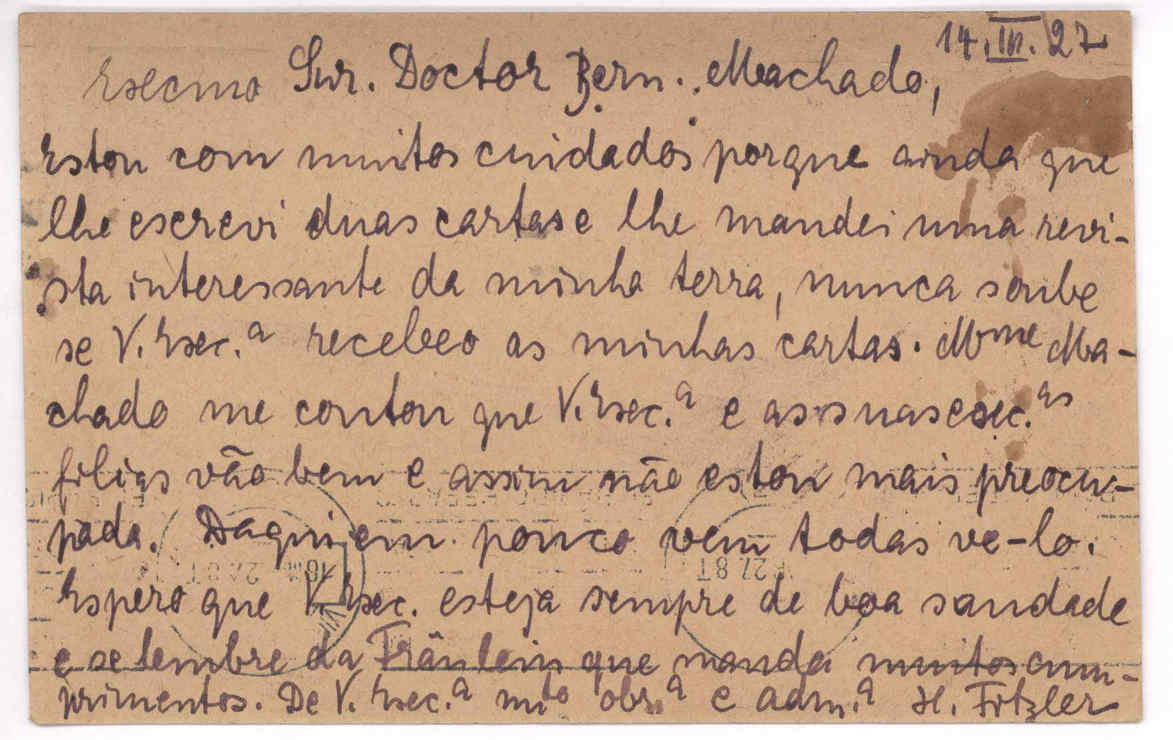 14.III.27
Execmo Snr. Doctor Bern. Machado,
Estou com muitos cuidados porque ainda que
lhe escrevi duas cartas e lhe mandei uma revi-
sta interessante da minha terra, nunca soube
se V. Exec.a recebeo as minhas cartas. Mme Ma-
chado me contou que V. Exec.a e as suas exec.as
filias vão bem e assim não estou mais preocu-
pada. Daqui em pouco vem todas ve-lo.
Espero que V. Exec. esteja sempre de boa saudade
e se lembre da Fräulein que manda muitos cum-
primentos. De V. Exec.a mto obr.a e adm.a H. Fitzler